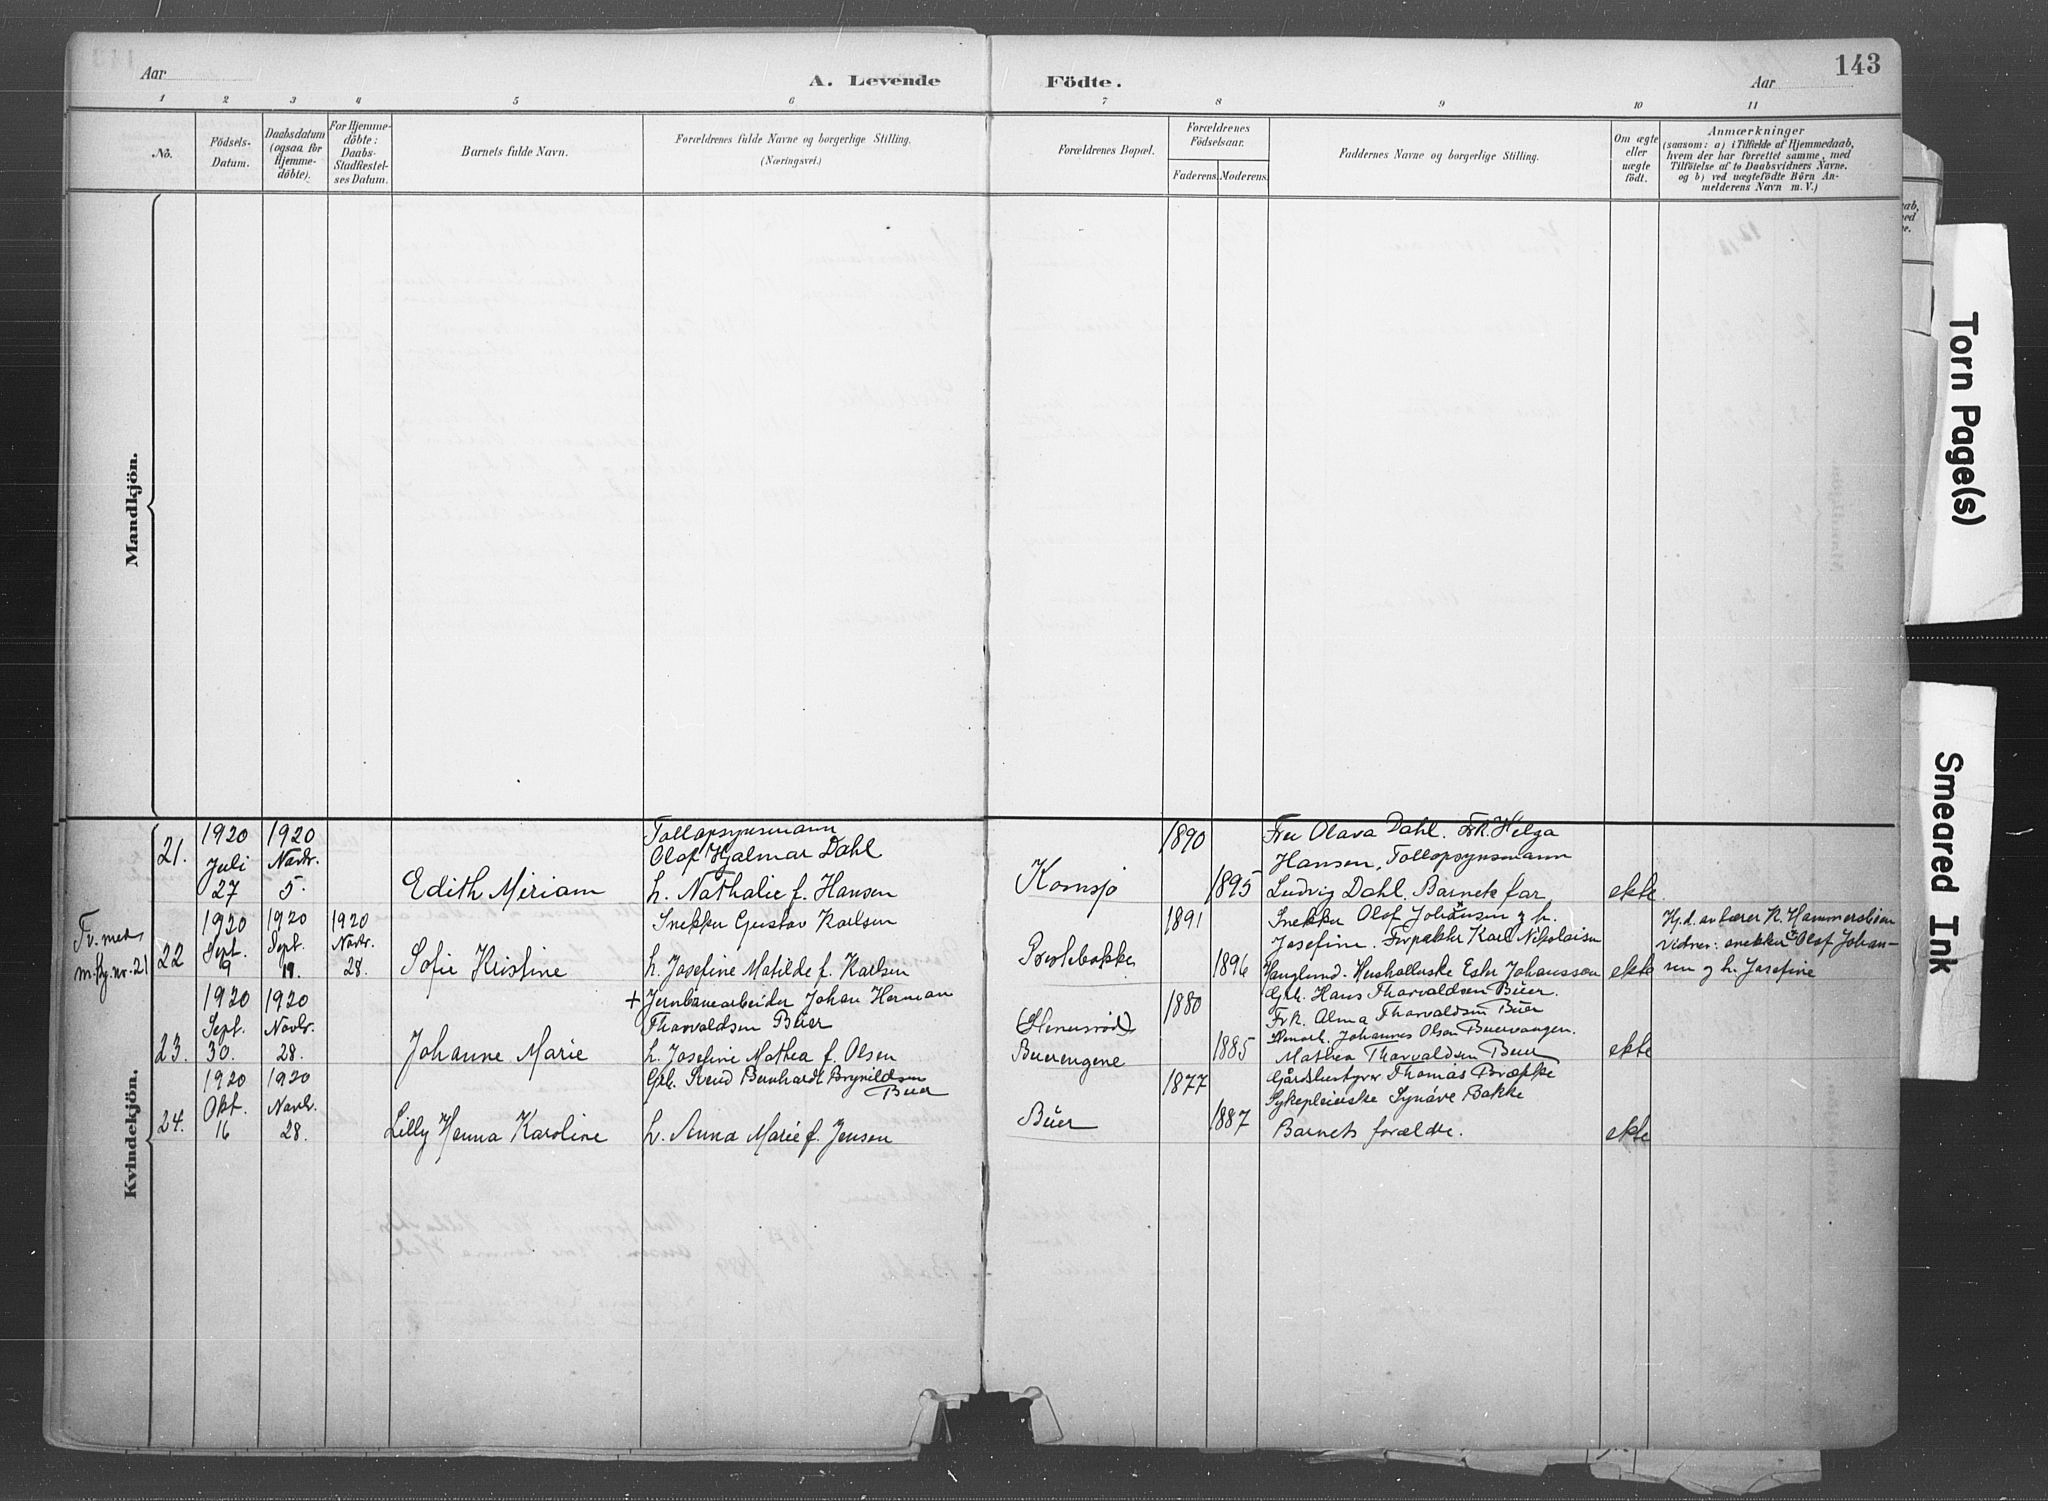 143
Aar
A. Levende
Födte.
Aar
1 2 3 4 5 6 7 8 9 10 11
No.
Födsels-
Datum.
Daabsdatum
(ogsaa for
Hjemme-
döbte).
For Hjemme-
döbte:
Daabs-
Stadfæstel-
ses Datum.
Barnets fulde Navn.
Forældrenes fulde Navne og borgerlige Stilling.
(Næringsvei.)
Forældrenes Bopæl.
Forældrenes
Födselsaar.
Faderens. Moderens.
Faddernes Navne og borgerlige Stilling.
Om ægte
eller
uægte
födt.
Anmærkninger
(saasom: a) i Tilfælde af Hjemmedaab,
hvem der har forrettet samme, med
Tilföielse af to Daabsvidners Navne.
og b) ved uægtefödte Börn An-
melderens Navn m. V.)
Mandkjön.
Kvindekjön.
21.
1920
Juli
27
1920
Novbr.
5.
Edith Miriam
Tollopsynsmann
Olof Hjalmar Dahl
h. Nathalie f. Hansen
Kornsjø
1890
1895
Fru Olava Dahl. Frk. Helga
Hansen, Tollopsynsmann
Ludvig Dahl. Barnets far
ekte
Tv. med
m.kj. nr. 21
22
1920
Sept.
9
1920
Sept.
19.
1920
Novbr.
28.
Sofie Kristine
Snekker Gustav Karlsen
h. Josefine Matilde f. Karlsen
Prestebakke
1891
1896
Snekker Olof Johansen og h.
Josefine. Forpakter Karl Nikolaisen
Hauglund. Husholderske Ester Johansson
ekte
Hj.d. av lærer K. Hammersbøen
Vidner: snekker Olof Johan-
sen og h. Josefine
23.
1920
Sept.
30.
1920
Novbr.
28.
Johanne Marie
+ Jernbanearbeider Johan Herman
Thorvaldsen Buer
h. Josefine Mathea f. Olsen
(Henusrød)
Buerengene
1880
1885
Gbr. Hans Thorvaldsen Buer.
Frk. Alma Thorvaldsen Buer
Johannes Olsen Buervangen.
Mathea Thorvaldsen Buer
ekte
24.
1920
Okt.
16
1920
Novbr.
28.
Lilly Henna Karoline
Gbr. Svend Bernhardt Brynildsen
Buer
h. Anna Marie f. Jensen
Buer
1877
1887
Gårdsbestyrer Thomas Præpke
Sykepleierske Synøve Bakke
Barnets forældre.
ekte
Torn Page(s)
Smeared Ink